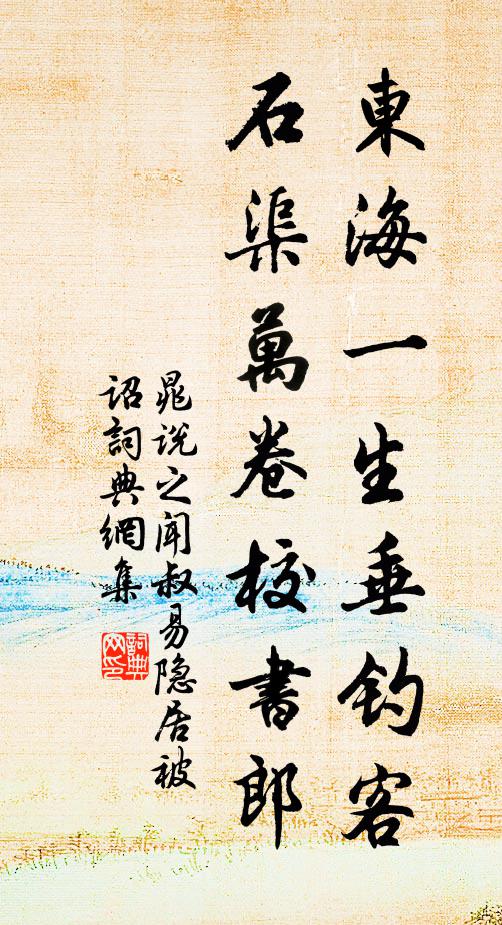 東海一生垂钓客
石渠萬卷校書郎
晁说之闻叔易隐居被
诏詞典網集
詞典网印